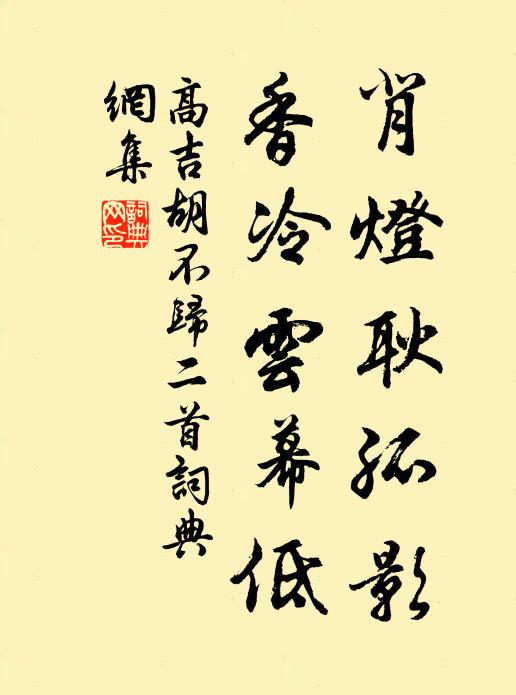 肖燈耿孤影
香冷雲幕低
高吉胡不歸二首詞典
網集
詞典
网印